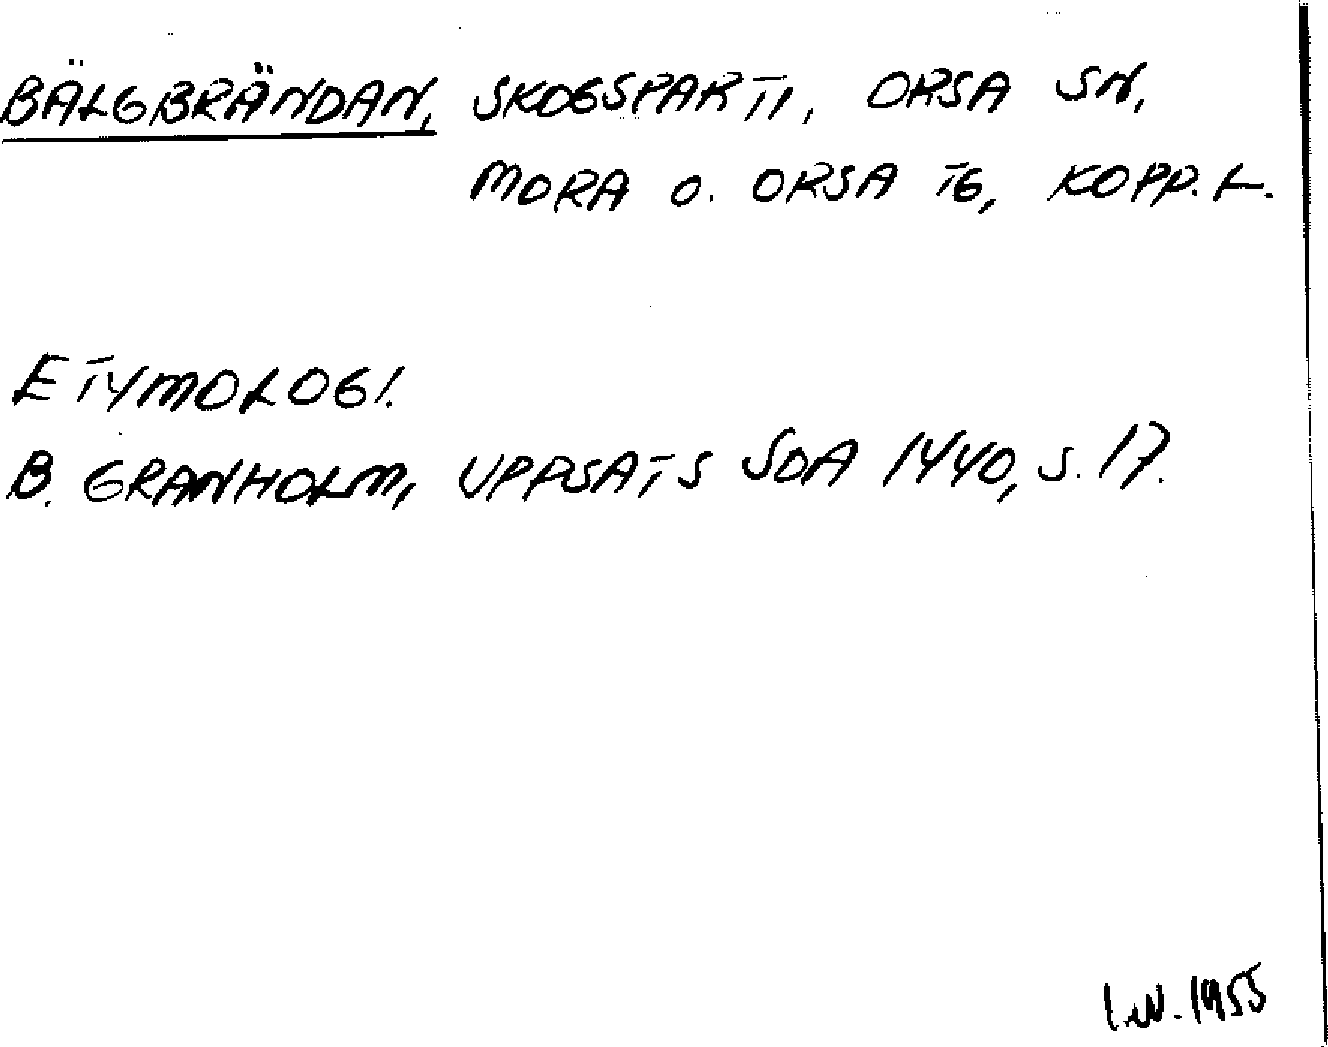 BÄLGBRÄNDAN, SKOGSPARTI, ORSA SN,
MORA O. ORSA TG, KOPP. L.
ETYMOLOGI.
B. GRANHOLM, UPPSATS SOA 1440, S. 17.
I.W. 1955